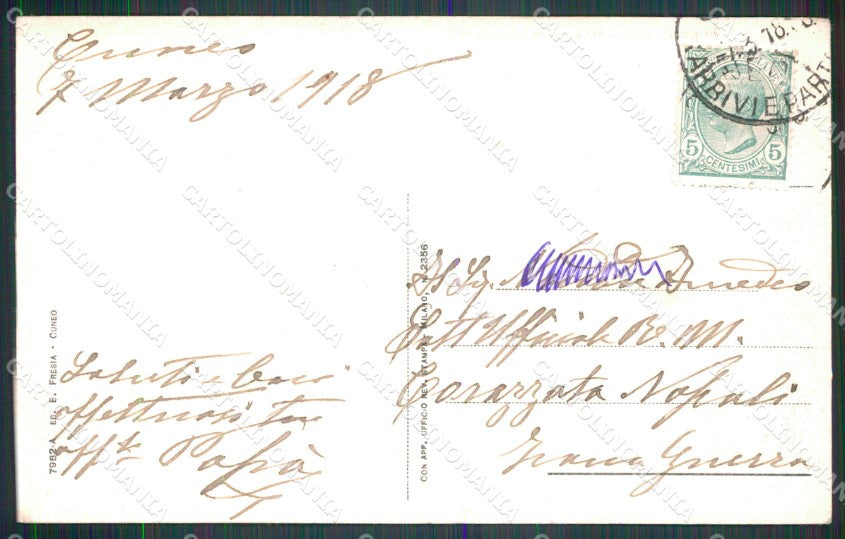 Cuneo
7 Marzo 1918
ARRIVI E PART
5 5
CENTESIMI
Amedeo
Sott Ufficiale R. M.
Corazzata Napoli
Zona Guerra
Saluti e baci
affettuosi tuo
aff.to Papà
7982-A ED. E. FRESIA - CUNEO
CON APP. UFFICIO REV. STAMPA, MILANO, N. 2356
CARTOLINOMANIA